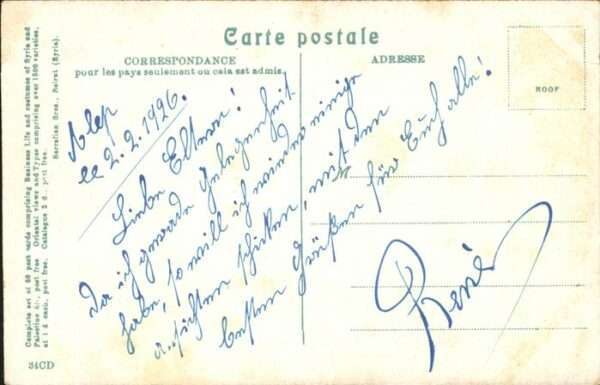 Carte postale
CORRESPONDANCE
pour les pays seulement ou cela est admis.
ADRESSE
ROOF
Alep
le 2.2.1926.
Liebe Eltern!
Da ich gerade Gelegenheit
habe, so will ich wieder einige
Ansichten schicken, mit den
besten Grüßen für Euch alle!
René
Complete set of 98 post cards comprising Business Life and costumes of Syria and
Palestine post free Oriental views and Types comprising over 1500 varieties.
at 1 d each, post free. Catalogue 2 d., post free.
Sarrafian Bros., Beirut (Syria).
34CD